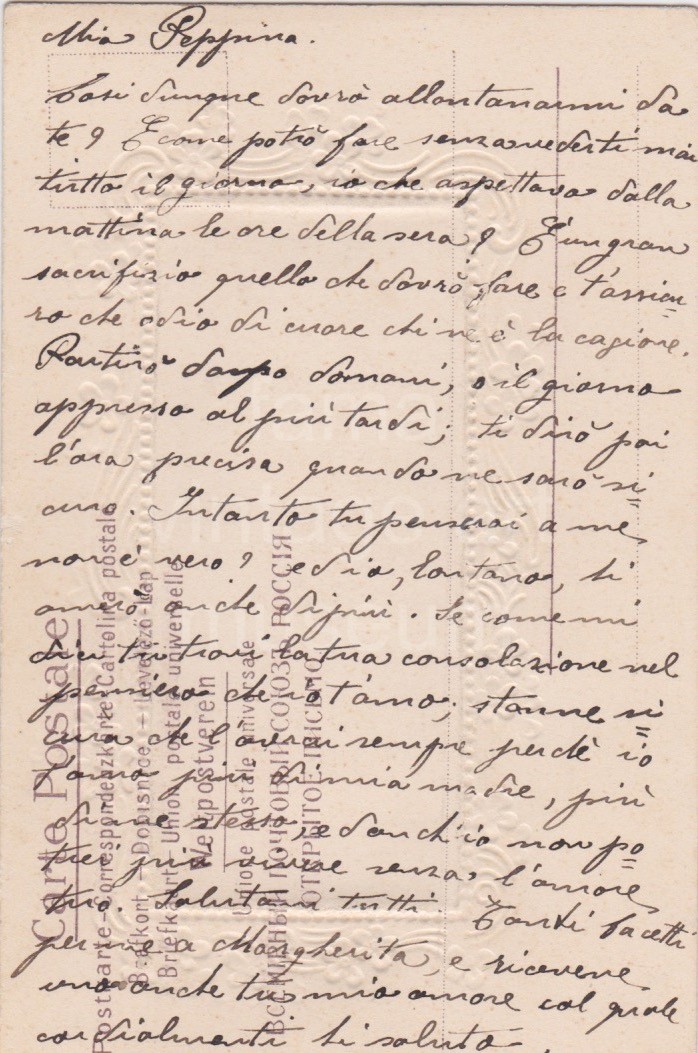 Mia Peppina.
Così dunque dovrò allontanarmi da
te? E come potrò fare senza vederti mai
tutto il giorno, io che aspettavo dalla
mattina le ore della sera? È un gran
sacrifizio quello che dovrò fare e t'assicu=
ro che odio di cuore chi ne è la cagione.
Partirò dopo domani, o il giorno
appresso al più tardi; ti dirò poi
l'ora precisa quando ne sarò si=
curo. Intanto tu penserai a me,
non è vero? ed io, lontano, ti
amerò anche di più. Se come mi
dici tu trovi la tua consolazione nel
pensiero che io t'amo, stanne si=
cura che l'avrai sempre perchè io
t'amo più di mia madre, più
di me stesso, ed anch'io non po=
trei più vivere senza l'amore
tuo. Salutami tutti. Tanti bacetti
per me a Margherita, e ricevene
uno anche tu mio amore col quale
cordialmente ti saluto.
Carte Postale
Postcarte-Correspondenzkarte-Cartolina postale
Brafkort-Dopisnice-Levelező-Lap
Briefkart-Union postale universelle
Weltpostverein
Unione postale universale
ВСЕМІРНЫЙ ПОЧТОВЫЙ СОЮЗЪ. РОССІЯ
ОТКРЫТОЕ ПИСЬМО